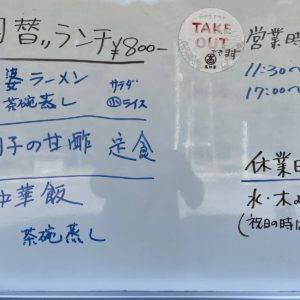 日替りランチ ¥800-
婆ラーメン サラダ
茶碗蒸し 小ライス
子の甘酢 定食
中華飯
茶碗蒸し
テイクアウト
TAKE
OUT
できます
営業時
11:30~
17:00~
休業日
水・木
(祝日の時は